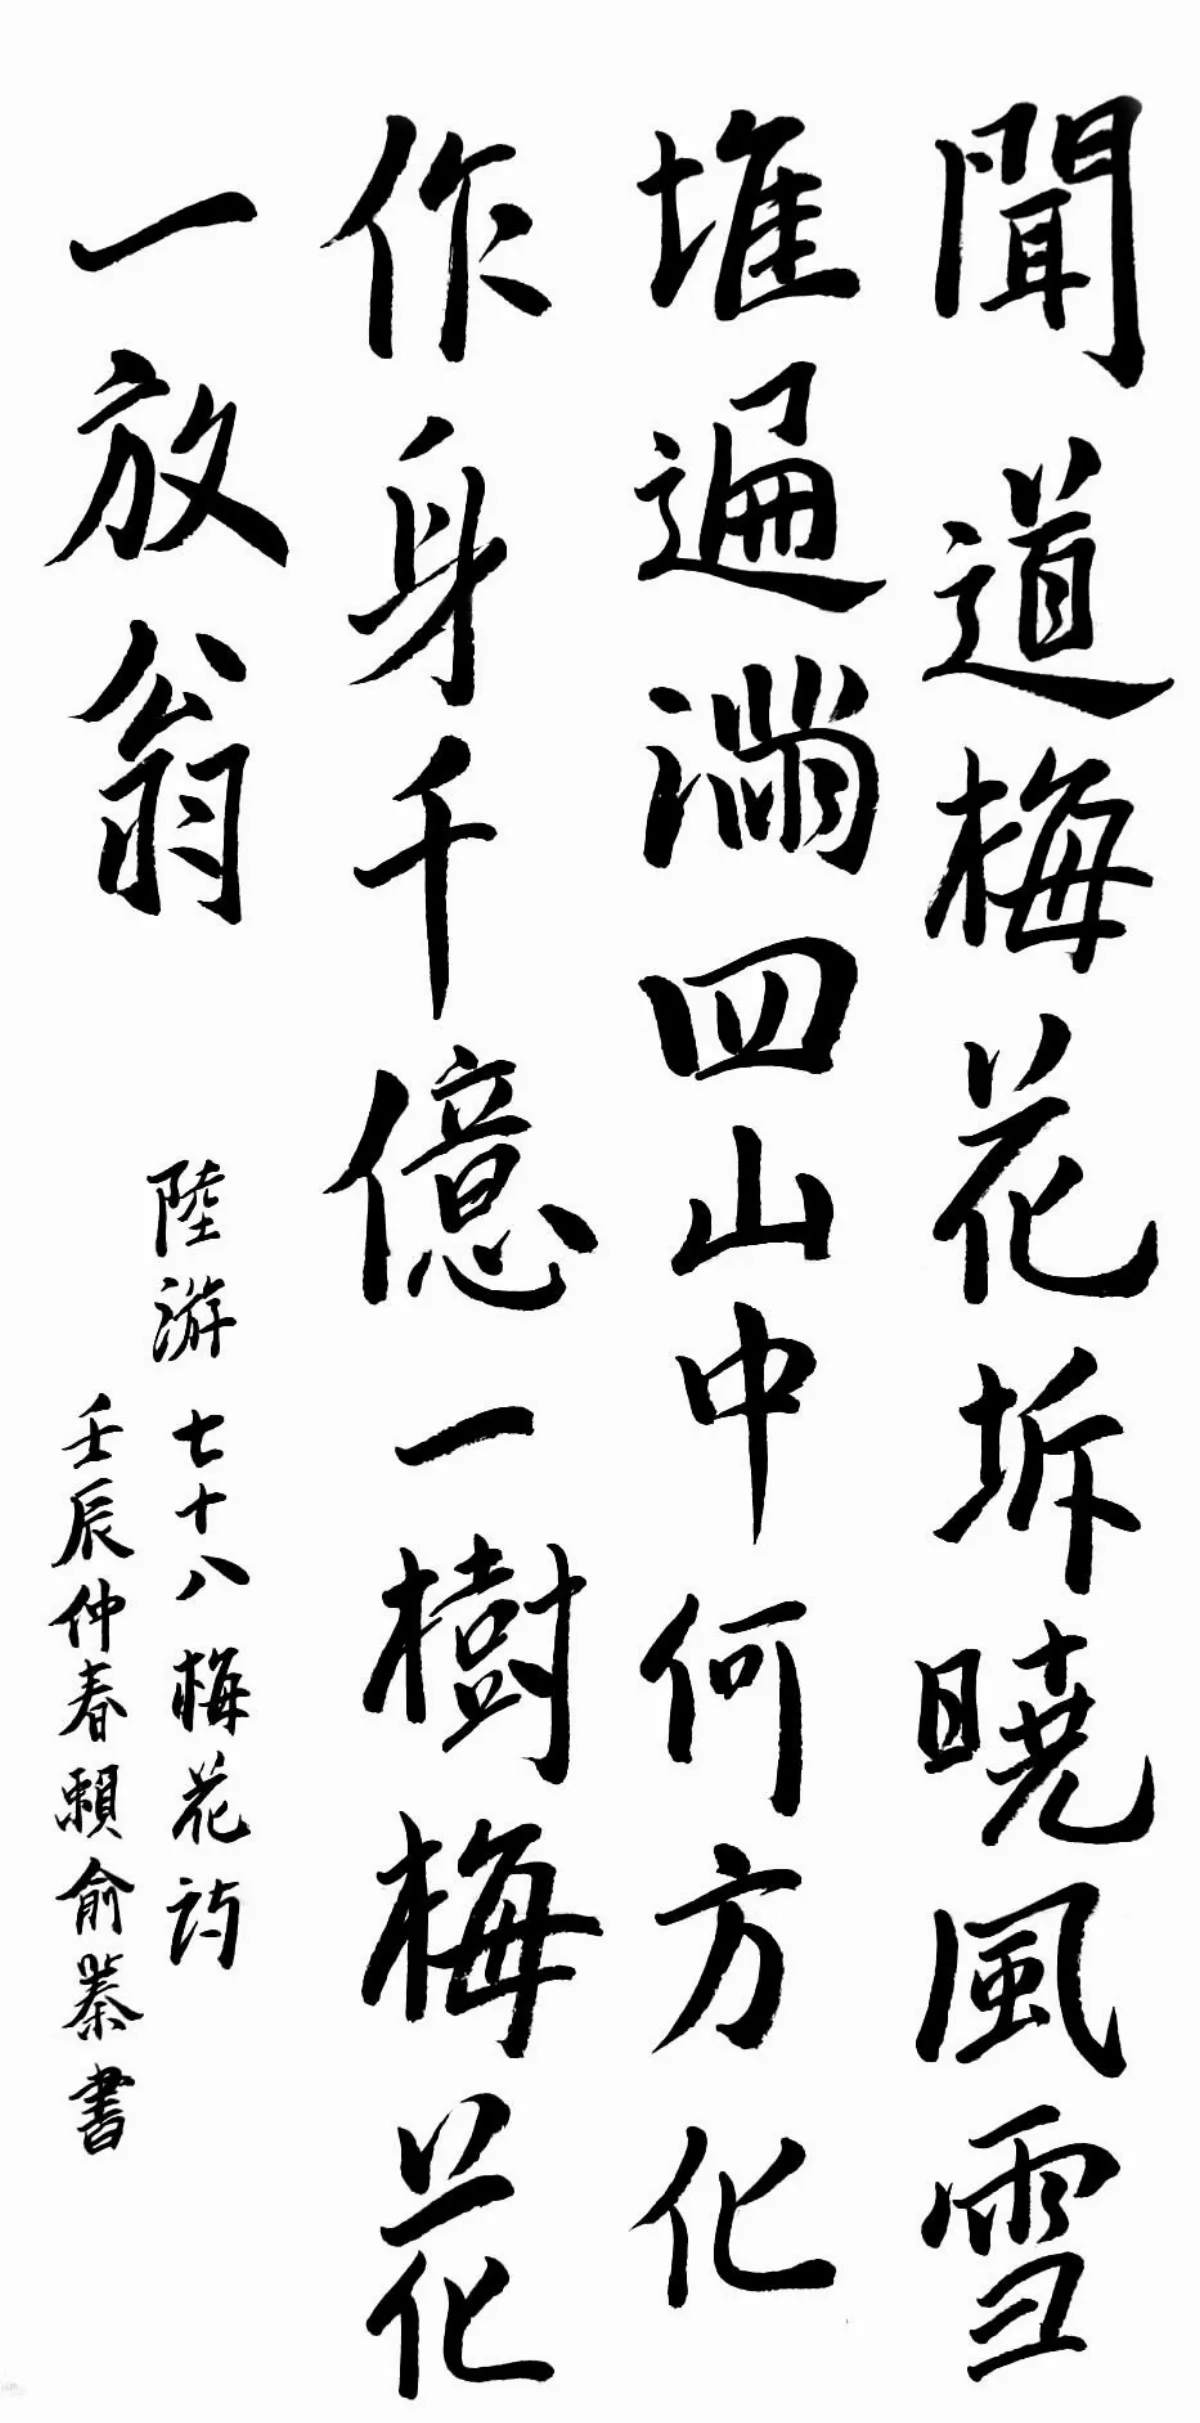 聞道梅花坼曉風雪
堆遍滿四山中何方化
作身千億一樹梅花
一放翁
陸游七十八梅花詩
壬辰仲春賴俞蓁書